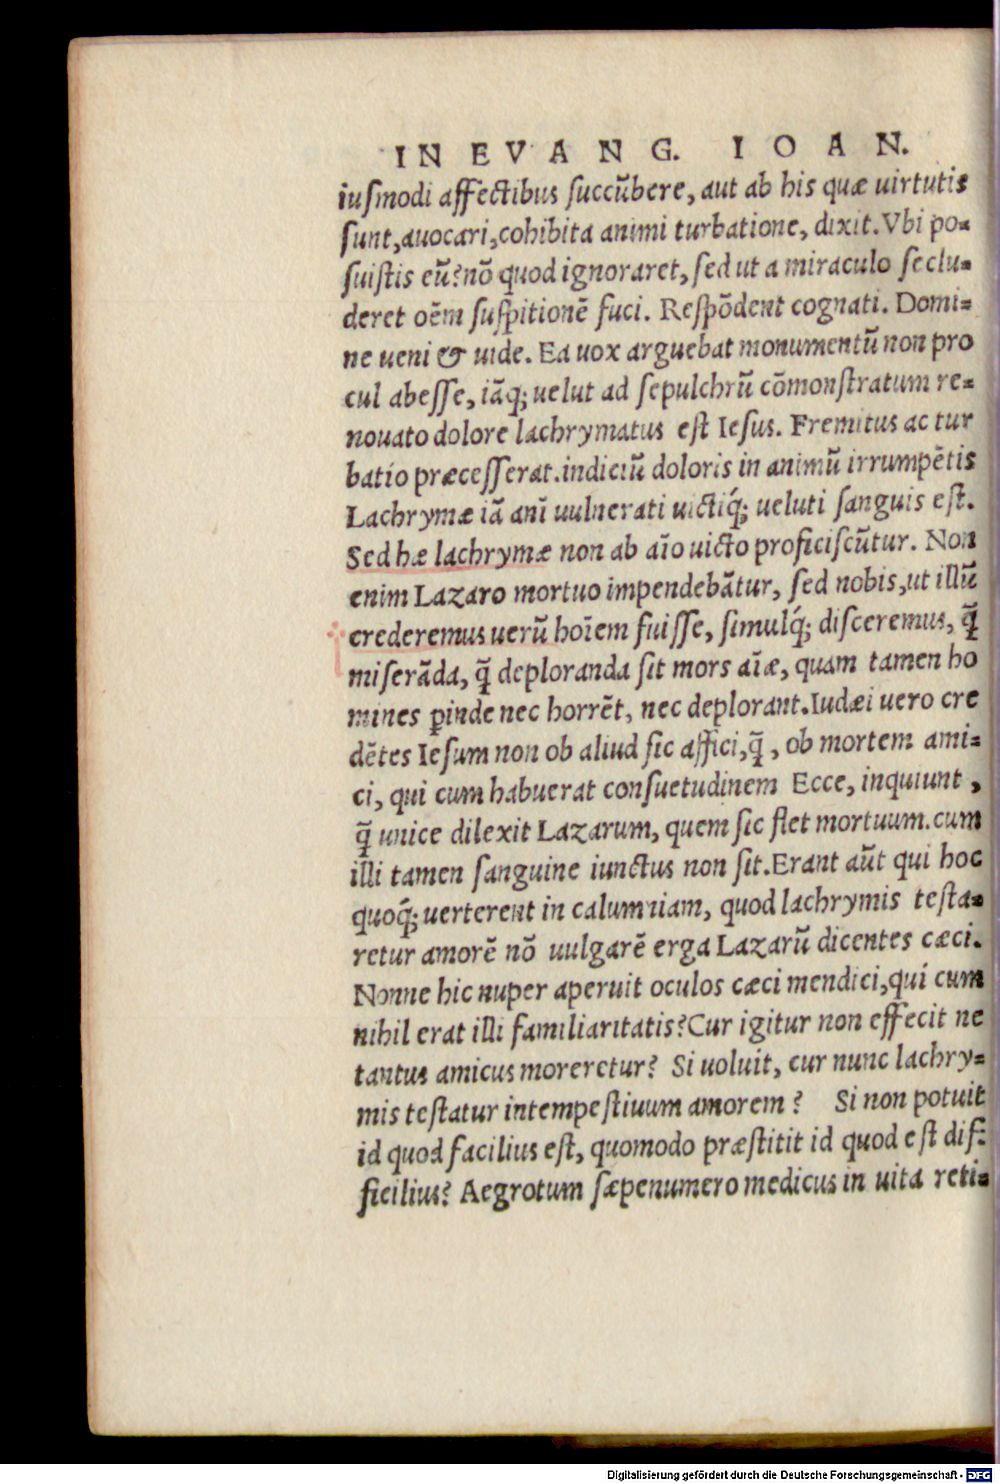 IN EVANG. IOAN.
iusmodi affectibus succũbere, aut ab his quæ uirtutis
sunt, auocari, cohibita animi turbatione, dixit. Vbi po-
suistis eũ? nõ quod ignoraret, sed ut a miraculo seclu-
deret oẽm suspitionẽ fuci. Respõdent cognati. Domi-
ne ueni & uide. Ea uox arguebat monumentũ non pro
cul abesse, iãq; uelut ad sepulchrũ cõmonstratum re-
nouato dolore lachrymatus est Iesus. Fremitus ac tur
batio præcesserat. indiciũ doloris in animũ irrumpẽtis
Lachrymæ iã anĩ uulnerati uictiq́; ueluti sanguis est.
Sed hæ lachrymæ non ab aĩo uicto proficiscũtur. Non
enim Lazaro mortuo impendebãtur, sed nobis, ut illũ
crederemus uerũ hoĩem fuisse, simulq́; disceremus, q̃
miserãda, q̃ deploranda sit mors aĩæ, quam tamen ho
mines ꝑinde nec horrẽt, nec deplorant. Iudæi uero cre
dẽtes Iesum non ob aliud sic affici, q̃, ob mortem ami-
ci, qui cum habuerat consuetudinem Ecce, inquiunt,
q̃ unice dilexit Lazarum, quem sic flet mortuum. cum
illi tamen sanguine iunctus non sit. Erant aũt qui hoc
quoq́; uerterent in calumniam, quod lachrymis testa-
retur amorẽ nõ uulgarẽ erga Lazarũ dicentes cæci.
Nonne hic nuper aperuit oculos cæci mendici, qui cum
nihil erat illi familiaritatis? Cur igitur non effecit ne
tantus amicus moreretur? Si uoluit, cur nunc lachry-
mis testatur intempestiuum amorem? Si non potuit
id quod facilius est, quomodo præstitit id quod est dif-
ficilius? Aegrotum sæpenumero medicus in uita reti-
Digitalisierung gefördert durch die Deutsche Forschungsgemeinschaft - DFG